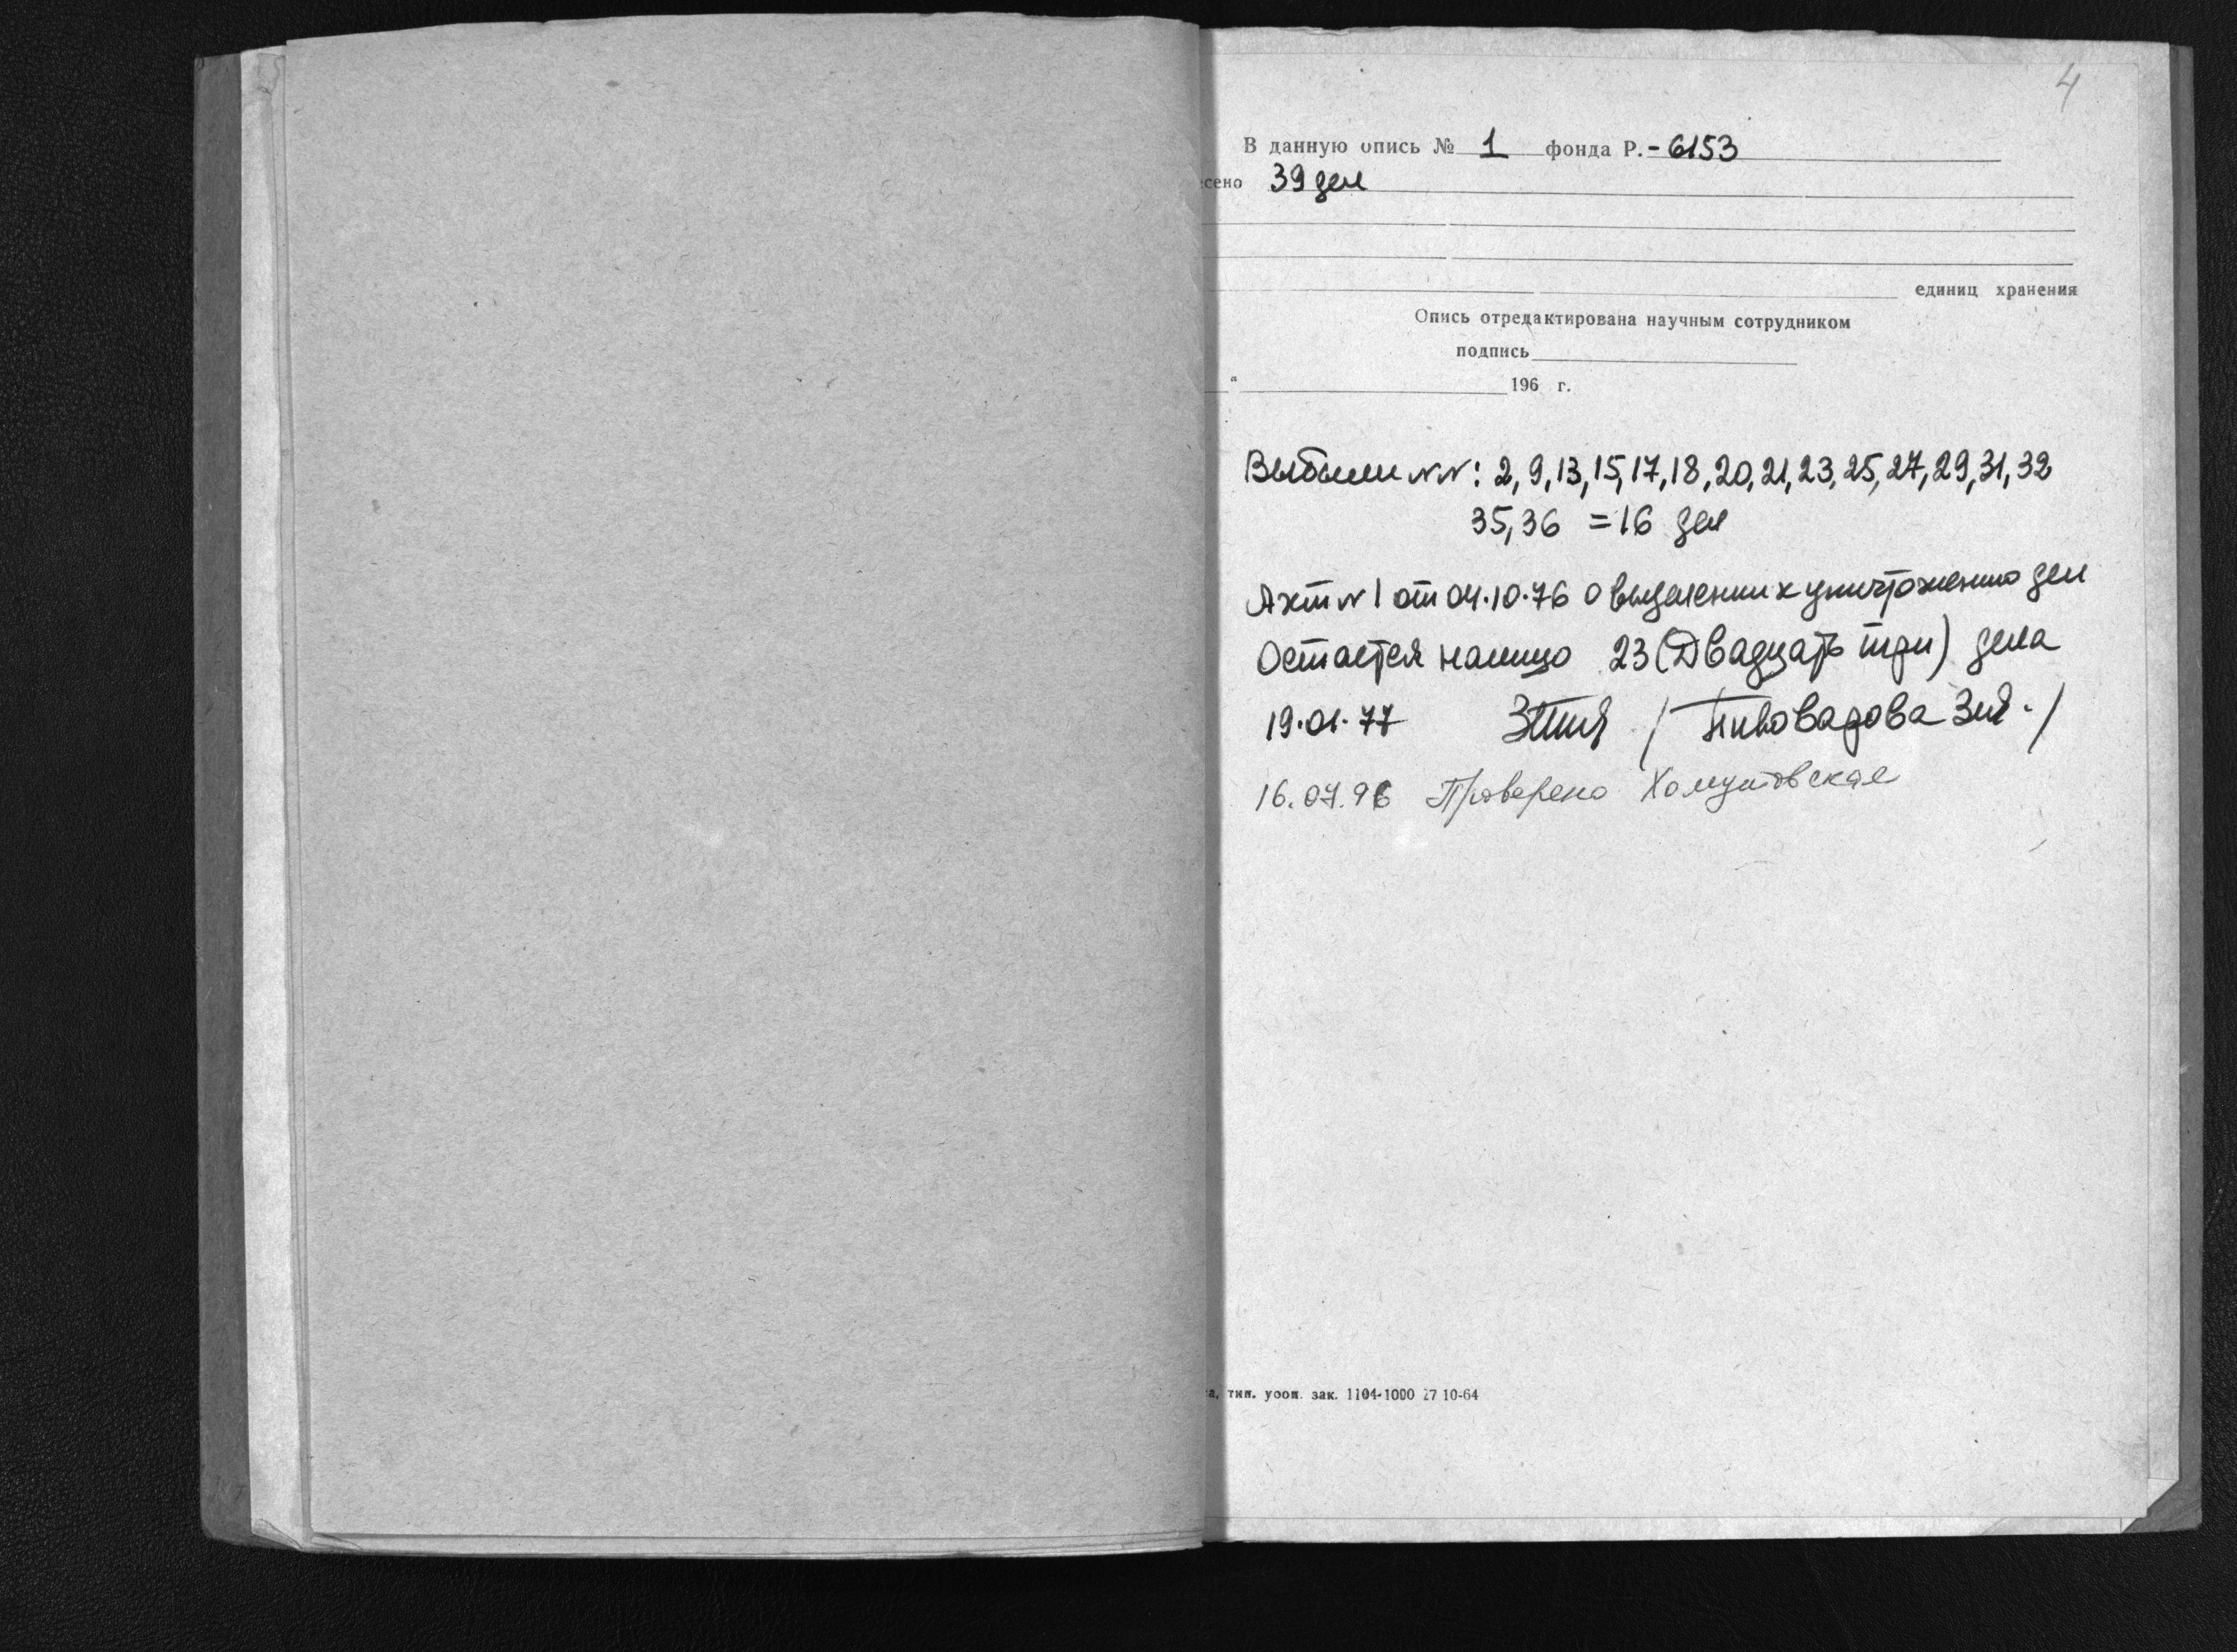 4
В данную опись № 1 фонда Р.-6153
сено 39 дел
единиц хранения
Опись отредактирована научным сотрудником
подпись
" 196 г.
Выбыли NN: 2, 9, 13, 15, 17, 18, 20, 21, 23, 25, 27, 29, 31, 32
35, 36 = 16 дел
Акт N 1 от 04.10.76 о выделении к уничтожению дел
Остается налицо 23 (Двадцать три) дела
19.01.77 / Пивоварова /
16.07.96 Проверено Хомутовская
а, тип. зак. 1104-1000 27 10-64